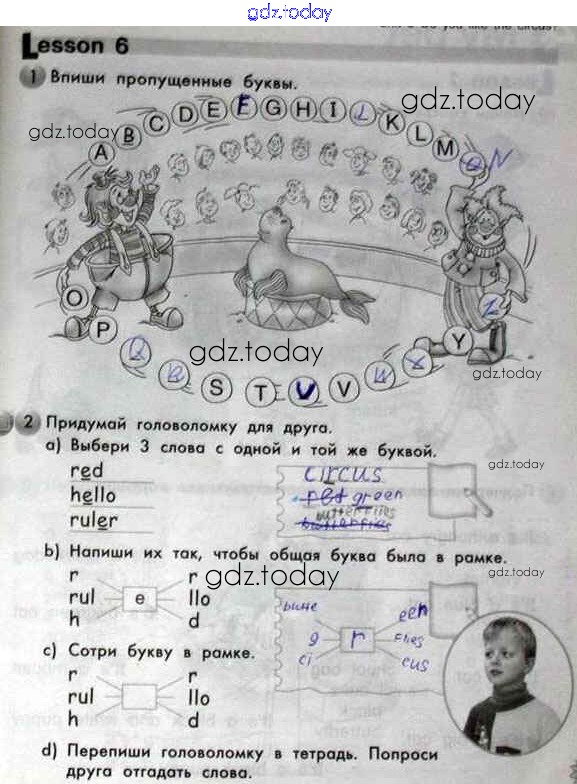 gdz.today
Lesson 6
1 Впиши пропущенные буквы.
gdz.today
gdz.today
A B C D E F G H I J K L M N
O P Q R S T U V W X Y Z
gdz.today
gdz.today
2 Придумай головоломку для друга.
a) Выбери 3 слова с одной и той же буквой.
red circus
hello green
ruler butterflies
gdz.today
b) Напиши их так, чтобы общая буква была в рамке.
gdz.today
r r
rul e llo
h d
een
g r flies
ci cus
gdz.today
c) Сотри букву в рамке.
r r
rul llo
h d
d) Перепиши головоломку в тетрадь. Попроси
друга отгадать слова.